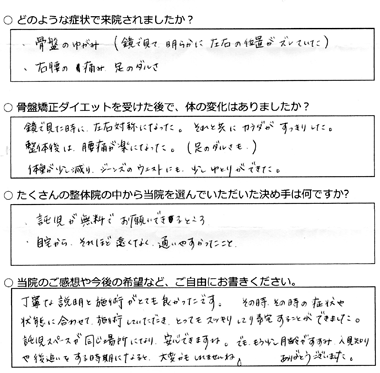 ○ どのような症状で来院されましたか？
・骨盤のゆがみ （鏡で見て 明らかに 左右の位置が ズレていた）
・右腰の 痛み 足のダルさ
○ 骨盤矯正ダイエットを受けた後で、体の変化はありましたか？
鏡で見た時に、左右対称になった。 それと共に カラダが すっきりした。
整体後は、腰痛が楽になった。（足のダルさも。）
体重が少し減り、ジーンズのウェストにも、少し ゆとりができた。
○ たくさんの整体院の中から当院を選んでいただいた決め手は何ですか?
・託児が無料で お願いできるところ
・自宅から、それほど遠くなく、通いやすかったこと。
○ 当院のご感想や今後の希望など、ご自由にお書きください。
丁寧な説明と施術がとても良かったです。 その時、その時の症状や
状態に合わせて、施術していただき、とっても スッキリして帰宅することができました。
託児スペースが同じ場所になり、安心できますね。でも、もう少し月齢がすすみ 人見知り
や後追いをする時期になると、大変かもしれませんね。 ありがとうございました。